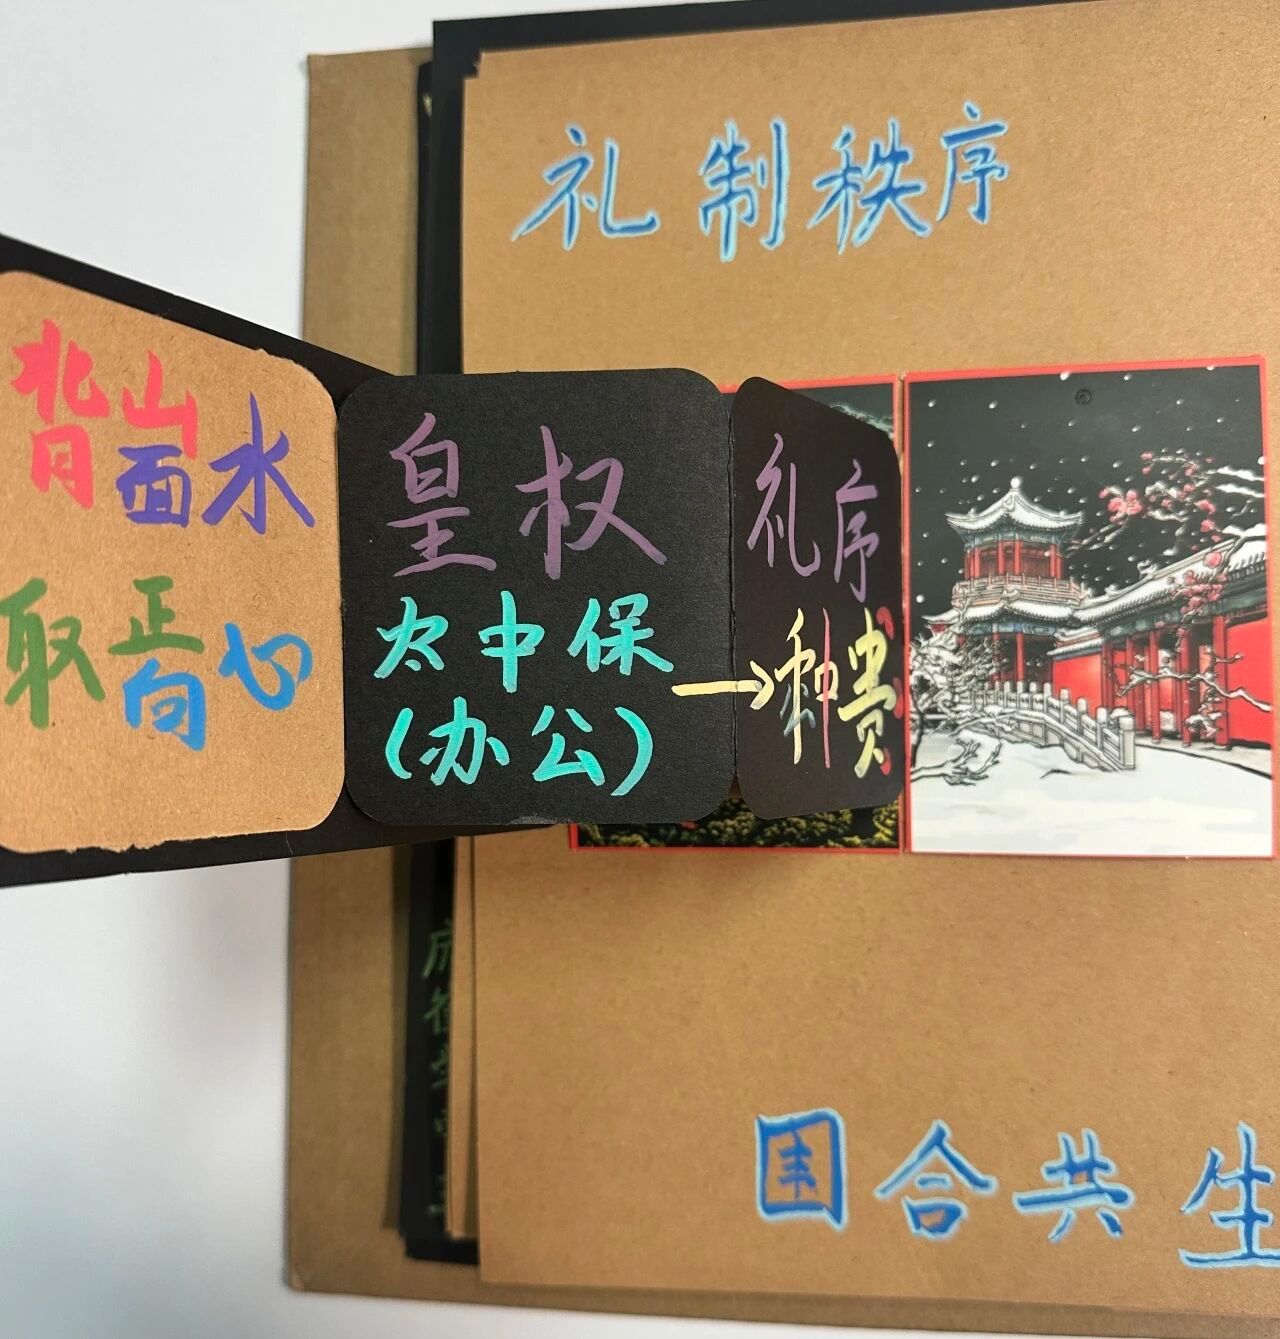 礼制秩序
背山面水
取正向心
皇权
太中保
(办公)
礼序
→和贵
围合共生